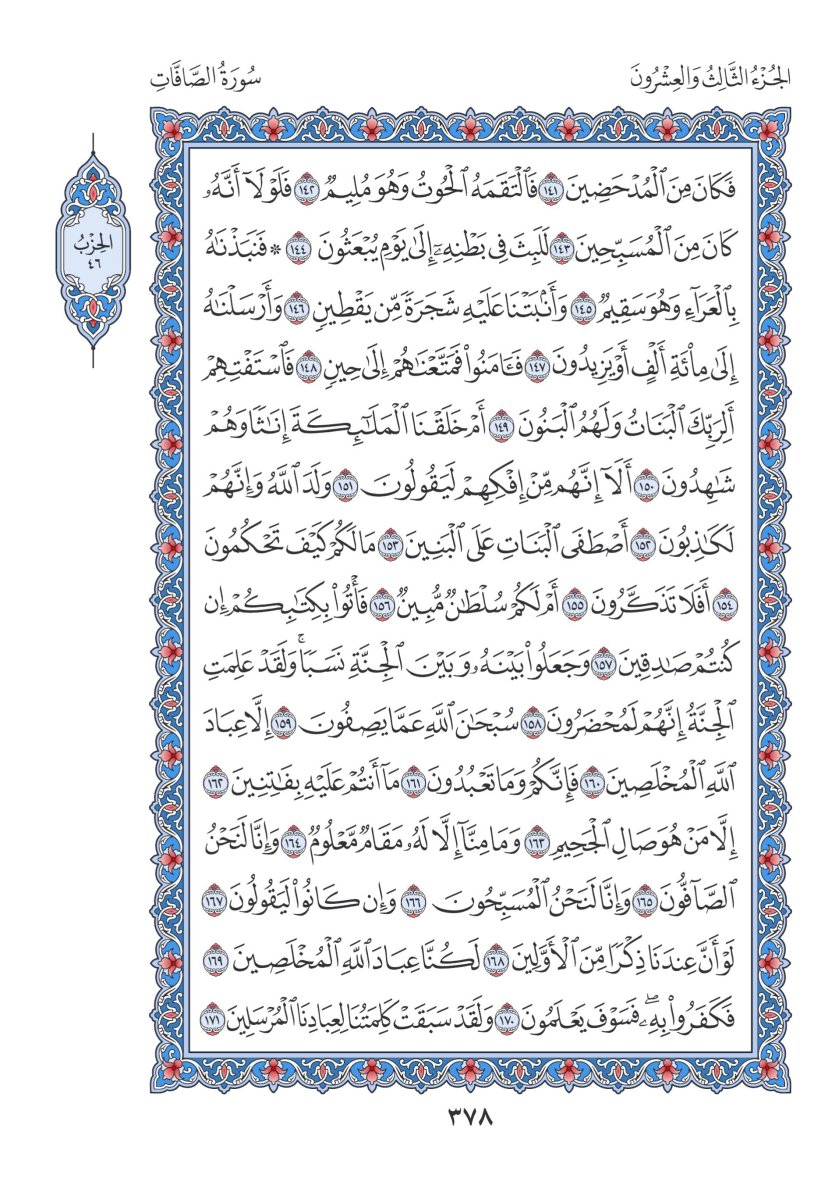 الجُزْءُ الثَّالِثُ وَالعِشْرُونَ
سُورَةُ الصَّافَّاتِ
الحِزْبُ
٤٦
فَكَانَ مِنَ ٱلۡمُدۡحَضِينَ ١٤١ فَٱلۡتَقَمَهُ ٱلۡحُوتُ وَهُوَ مُلِيمٞ ١٤٢ فَلَوۡلَآ أَنَّهُۥ
كَانَ مِنَ ٱلۡمُسَبِّحِينَ ١٤٣ لَلَبِثَ فِي بَطۡنِهِۦٓ إِلَىٰ يَوۡمِ يُبۡعَثُونَ ١٤٤ * فَنَبَذۡنَٰهُ
بِٱلۡعَرَآءِ وَهُوَ سَقِيمٞ ١٤٥ وَأَنۢبَتۡنَا عَلَيۡهِ شَجَرَةٗ مِّن يَقۡطِينٖ ١٤٦ وَأَرۡسَلۡنَٰهُ
إِلَىٰ مِاْئَةِ أَلۡفٍ أَوۡ يَزِيدُونَ ١٤٧ فَـَٔامَنُواْ فَمَتَّعۡنَٰهُمۡ إِلَىٰ حِينٖ ١٤٨ فَٱسۡتَفۡتِهِمۡ
أَلِرَبِّكَ ٱلۡبَنَاتُ وَلَهُمُ ٱلۡبَنُونَ ١٤٩ أَمۡ خَلَقۡنَا ٱلۡمَلَٰٓئِكَةَ إِنَٰثٗا وَهُمۡ
شَٰهِدُونَ ١٥٠ أَلَآ إِنَّهُم مِّنۡ إِفۡكِهِمۡ لَيَقُولُونَ ١٥١ وَلَدَ ٱللَّهُ وَإِنَّهُمۡ
لَكَٰذِبُونَ ١٥٢ أَصۡطَفَى ٱلۡبَنَاتِ عَلَى ٱلۡبَنِينَ ١٥٣ مَا لَكُمۡ كَيۡفَ تَحۡكُمُونَ
١٥٤ أَفَلَا تَذَكَّرُونَ ١٥٥ أَمۡ لَكُمۡ سُلۡطَٰنٞ مُّبِينٞ ١٥٦ فَأۡتُواْ بِكِتَٰبِكُمۡ إِن
كُنتُمۡ صَٰدِقِينَ ١٥٧ وَجَعَلُواْ بَيۡنَهُۥ وَبَيۡنَ ٱلۡجِنَّةِ نَسَبٗاۚ وَلَقَدۡ عَلِمَتِ
ٱلۡجِنَّةُ إِنَّهُمۡ لَمُحۡضَرُونَ ١٥٨ سُبۡحَٰنَ ٱللَّهِ عَمَّا يَصِفُونَ ١٥٩ إِلَّا عِبَادَ
ٱللَّهِ ٱلۡمُخۡلَصِينَ ١٦٠ فَإِنَّكُمۡ وَمَا تَعۡبُدُونَ ١٦١ مَآ أَنتُمۡ عَلَيۡهِ بِفَٰتِنِينَ ١٦٢
إِلَّا مَنۡ هُوَ صَالِ ٱلۡجَحِيمِ ١٦٣ وَمَا مِنَّآ إِلَّا لَهُۥ مَقَامٞ مَّعۡلُومٞ ١٦٤ وَإِنَّا لَنَحۡنُ
ٱلصَّآفُّونَ ١٦٥ وَإِنَّا لَنَحۡنُ ٱلۡمُسَبِّحُونَ ١٦٦ وَإِن كَانُواْ لَيَقُولُونَ ١٦٧
لَوۡ أَنَّ عِندَنَا ذِكۡرٗا مِّنَ ٱلۡأَوَّلِينَ ١٦٨ لَكُنَّا عِبَادَ ٱللَّهِ ٱلۡمُخۡلَصِينَ ١٦٩
فَكَفَرُواْ بِهِۦۖ فَسَوۡفَ يَعۡلَمُونَ ١٧٠ وَلَقَدۡ سَبَقَتۡ كَلِمَتُنَا لِعِبَادِنَا ٱلۡمُرۡسَلِينَ ١٧١
٣٧٨